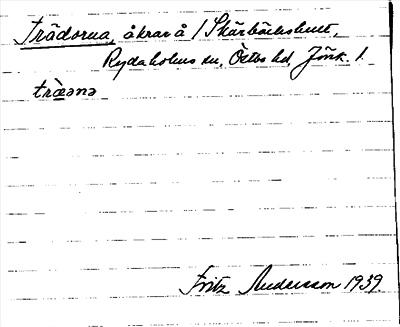 Trädorna, åkrar å / Skärbäckshult,
Rydaholms sn, Östbo hd, Jönk. l.
trä̀ənə
Fritz Andersson 1939.